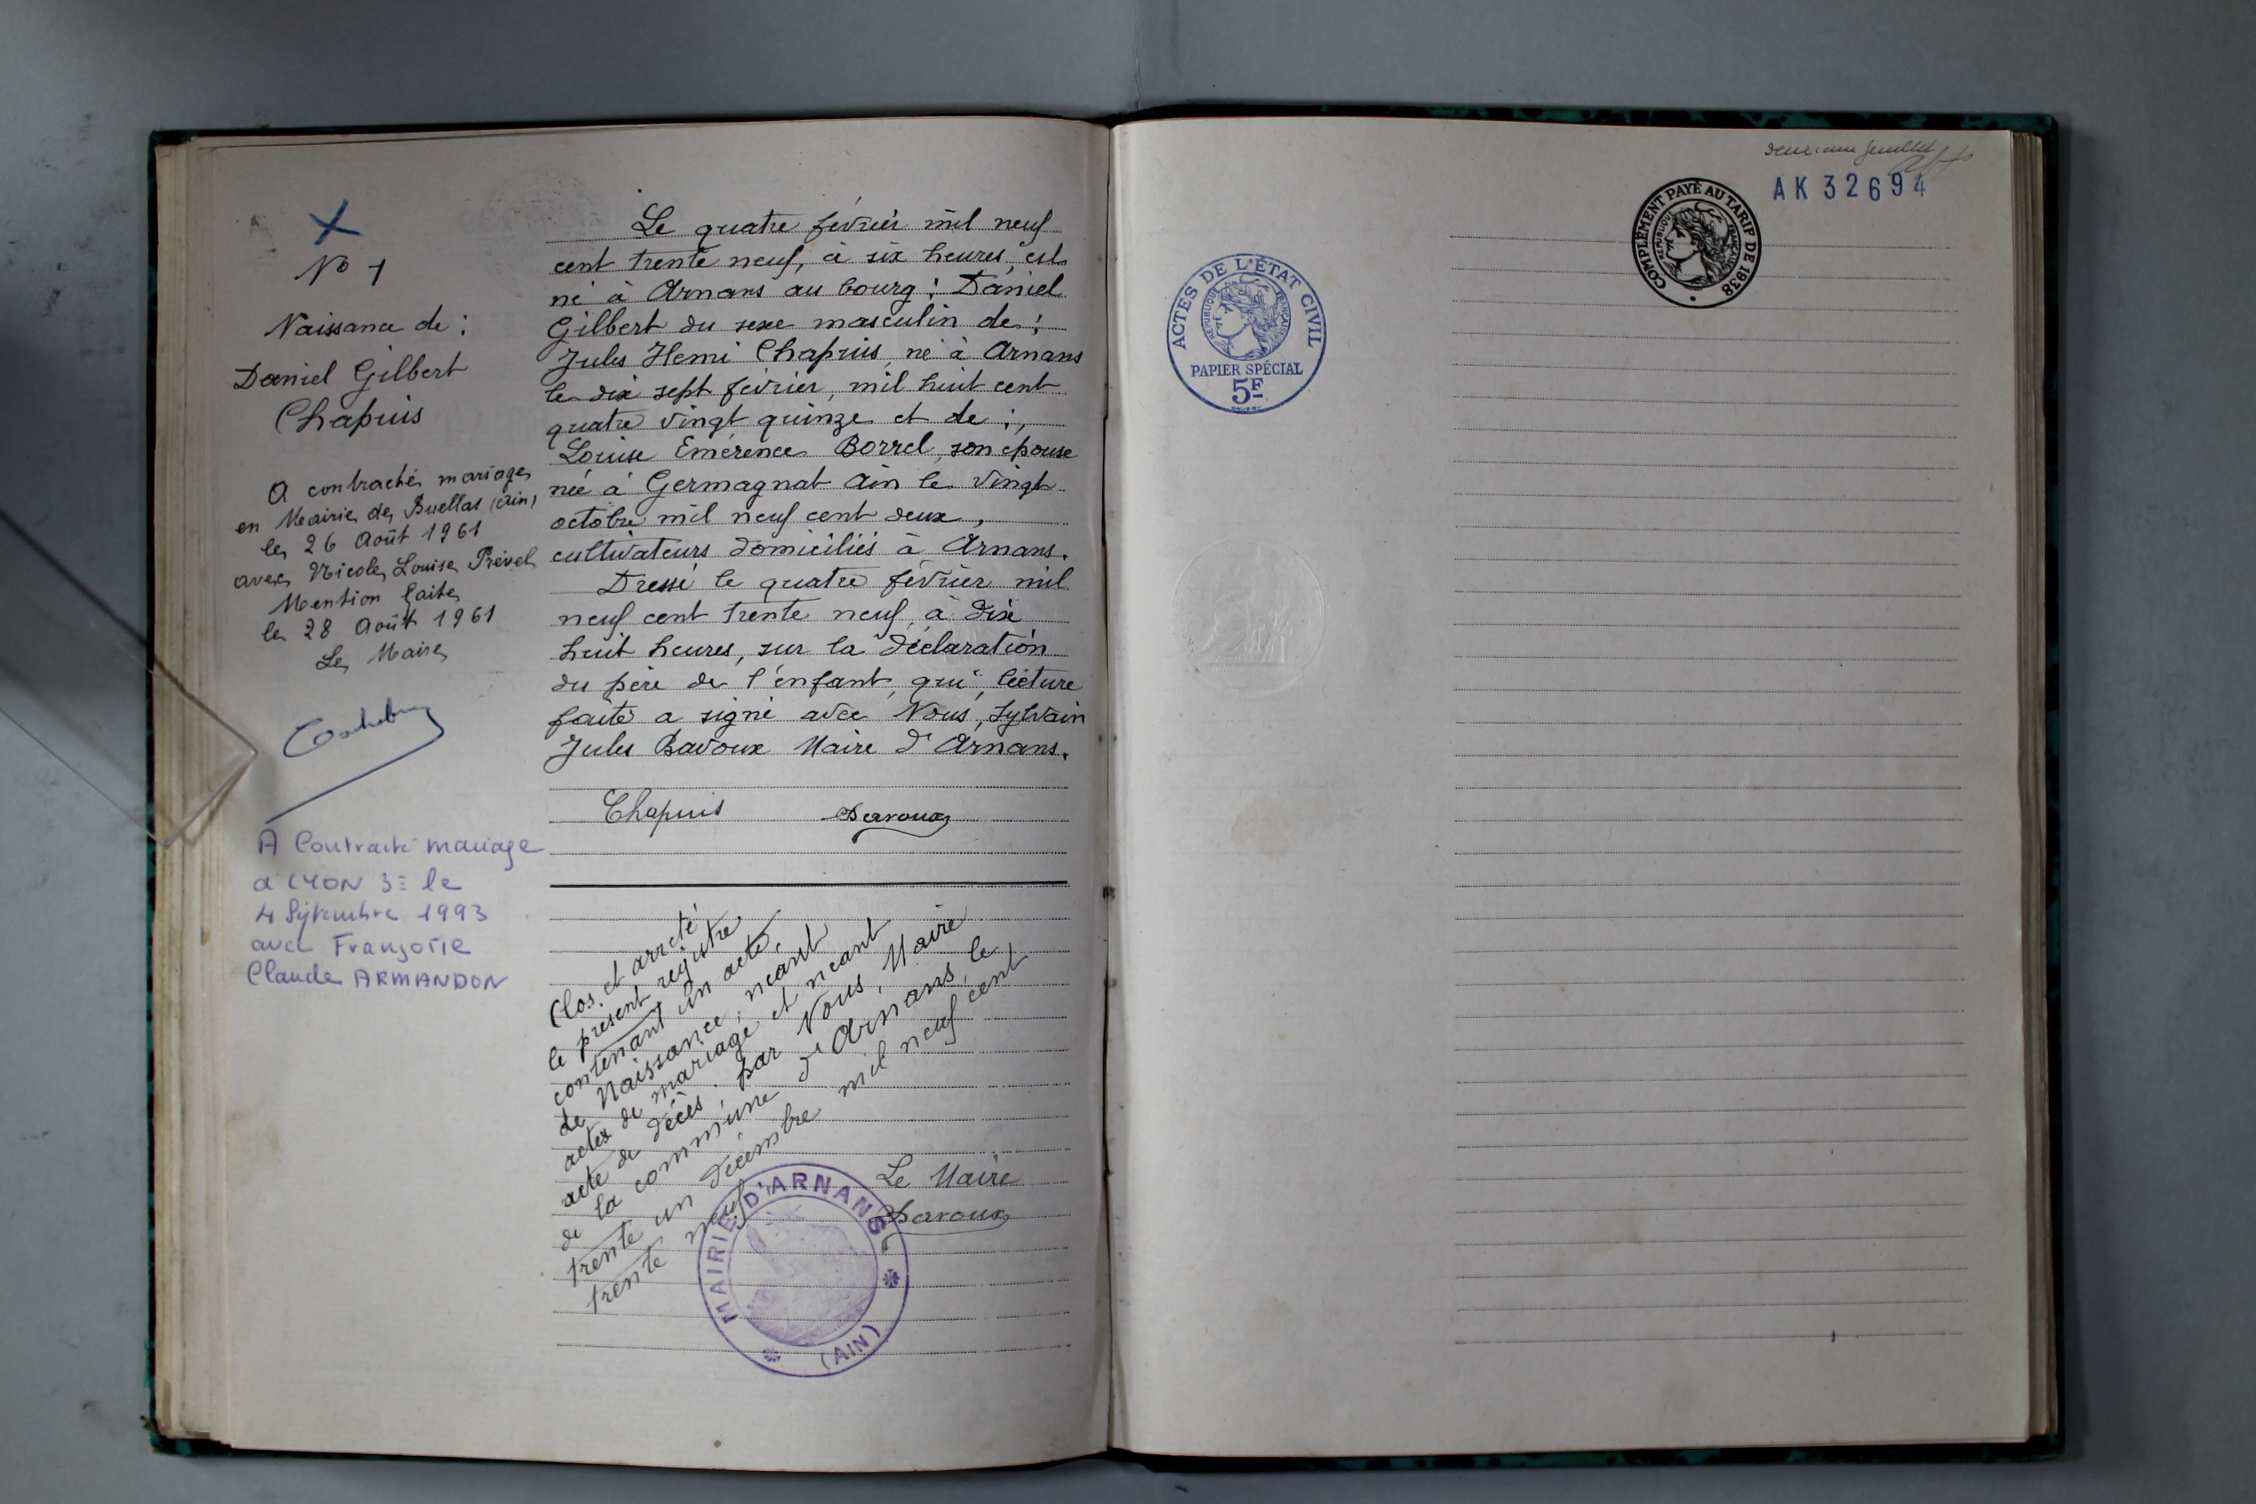 N° 1
Naissance de :
Daniel Gilbert
Chapuis
A contracté mariage
en Mairie de Buellas (Ain)
le 26 Août 1961
avec Nicole Louise Prevel
Mention faite
le 28 Août 1961
Le Maire
A Contracté mariage
à LYON 3e le
4 Septembre 1993
avec Françoise
Claude ARMANDON
Le quatre février mil neuf
cent trente neuf, à six heures, est
né à Arnans au bourg : Daniel
Gilbert du sexe masculin de :
Jules Henri Chapuis, né à Arnans
le dix sept février, mil huit cent
quatre vingt quinze et de ;,
Louise Emérence Borrel, son épouse
née à Germagnat Ain le vingt
octobre mil neuf cent deux,
cultivateurs domiciliés à Arnans.
Dressé le quatre février mil
neuf cent trente neuf, à dix
huit heures, sur la déclaration
du père de l'enfant, qui, lecture
faite a signé avec Nous, Sylvain
Jules Bavoux Maire d'Arnans.
Chapuis Bavoux
Clos et arrêté
le présent registre
contenant un acte
de Naissance, néant
actes de mariage et néant
acte de décès, par Nous, Maire
de la commune d'Arnans, le
trente un décembre mil neuf cent
trente neuf
Le Maire
Bavoux
MAIRIE D'ARNANS
(AIN)
deuxième feuillet
AK 32694
COMPLÉMENT PAYÉ AU TARIF DE 1938
RÉPUBLIQUE FRANÇAISE
ACTES DE L'ÉTAT CIVIL
RÉPUBLIQUE FRANÇAISE
PAPIER SPÉCIAL
5F